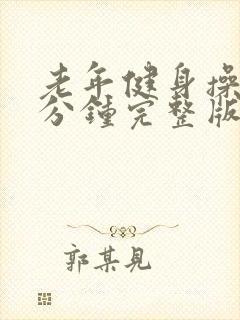 老年健身操
分鐘完整版
郭某見